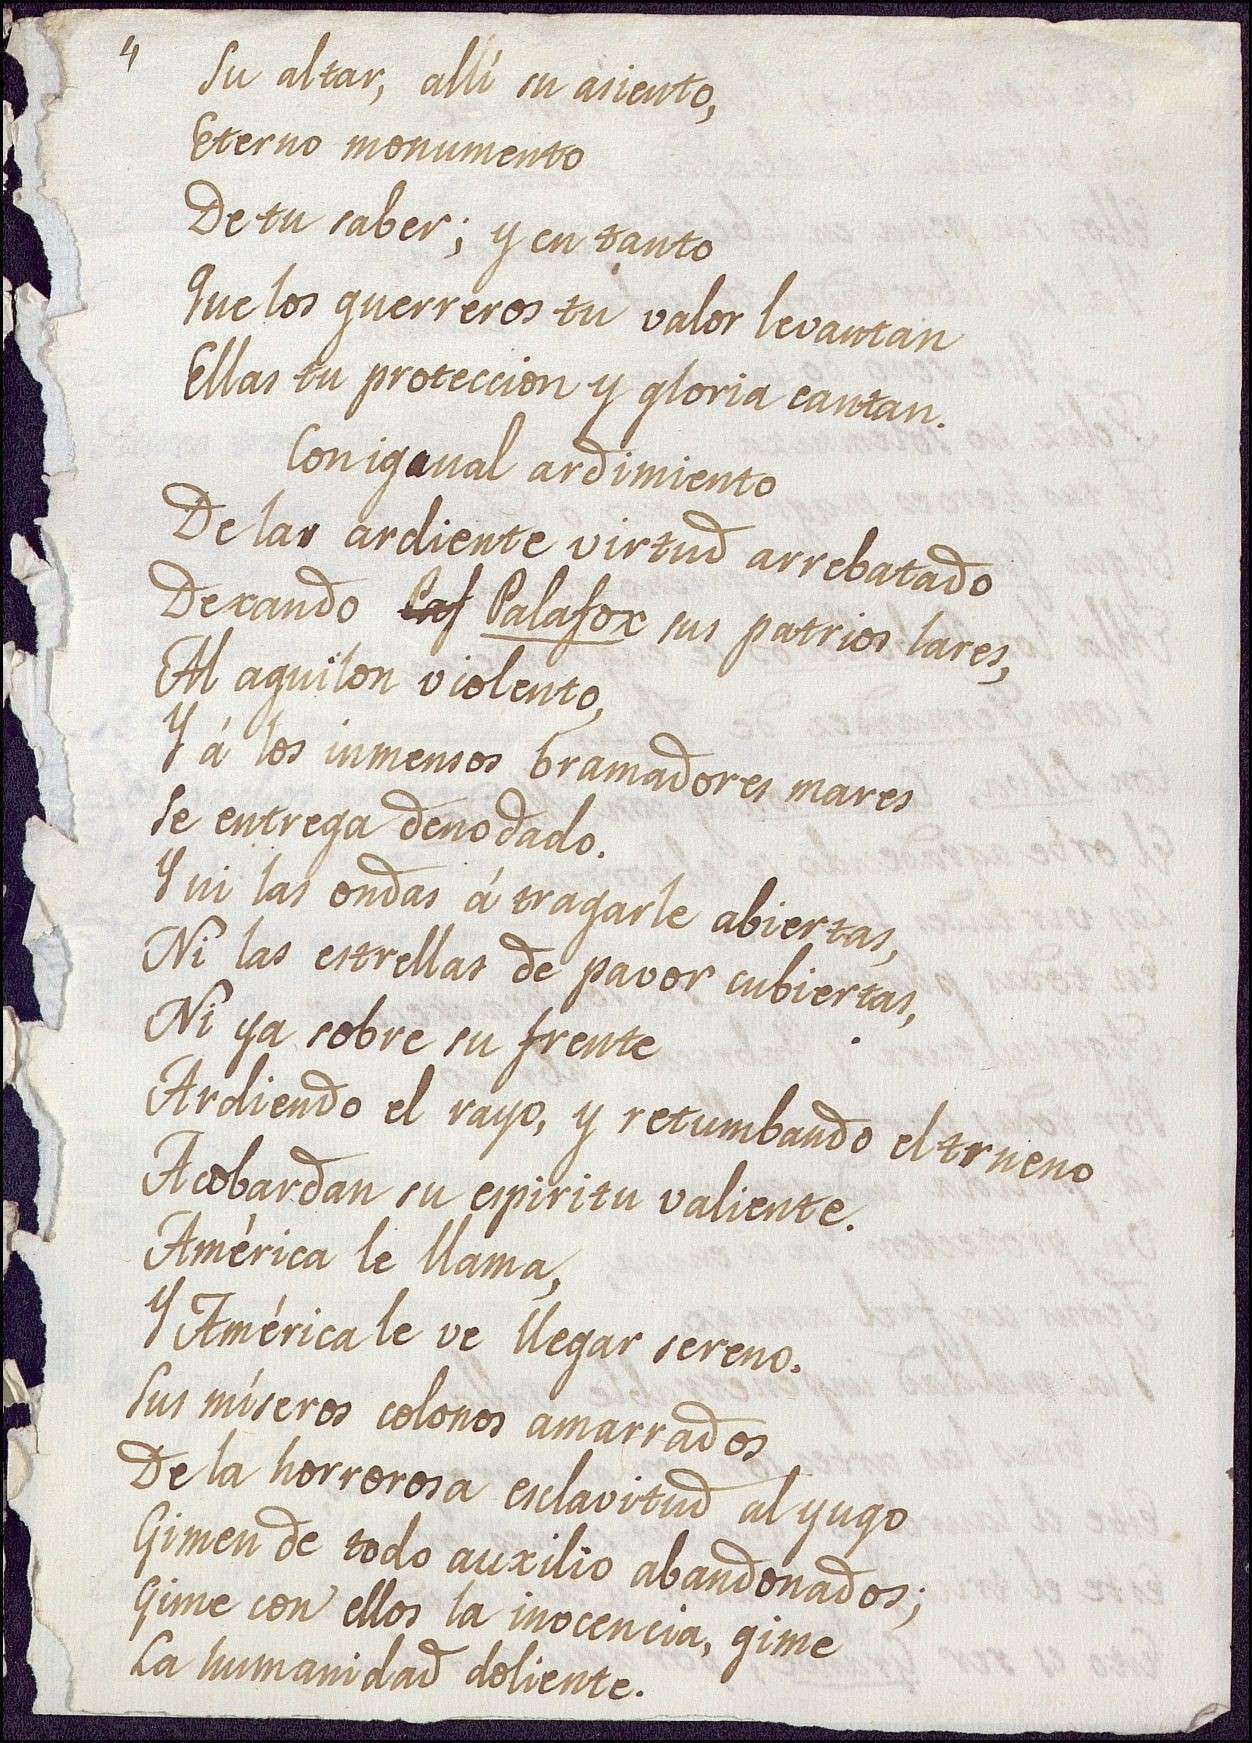 4
Su altar, allí su asiento,
Eterno monumento
De tu saber; y en tanto
Que los guerreros tu valor levantan
Ellas tu proteccion y gloria cantan.
Con igaual ardimiento
De lar ardiente virtud arrebatado
Dexando Palafox sus patrios lares,
Al aquilon violento,
Y á los inmensos bramadores mares
Se entrega denodado.
Y ni las ondas á tragarle abiertas,
Ni las estrellas de pavor cubiertas,
Ni ya sobre su frente
Ardiendo el rayo, y retumbando el trueno
Acobardan su espiritu valiente.
América le llama,
Y América le ve llegar sereno.
Sus míseros colonos amarrados
De la horrorosa esclavitud al yugo
Gimen de todo auxilio abandonados;
Gime con ellos la inocencia, gime
La humanidad doliente.